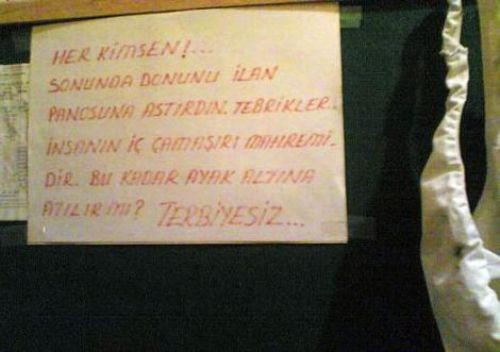 HER KİMSEN!...
SONUNDA DONUNU İLAN
PANOSUNA ASTIRDIN. TEBRİKLER..
İNSANIN İÇ ÇAMAŞIRI MAHREMİ-
DİR. BU KADAR AYAK ALTINA
ATILIR MI? TERBİYESİZ...